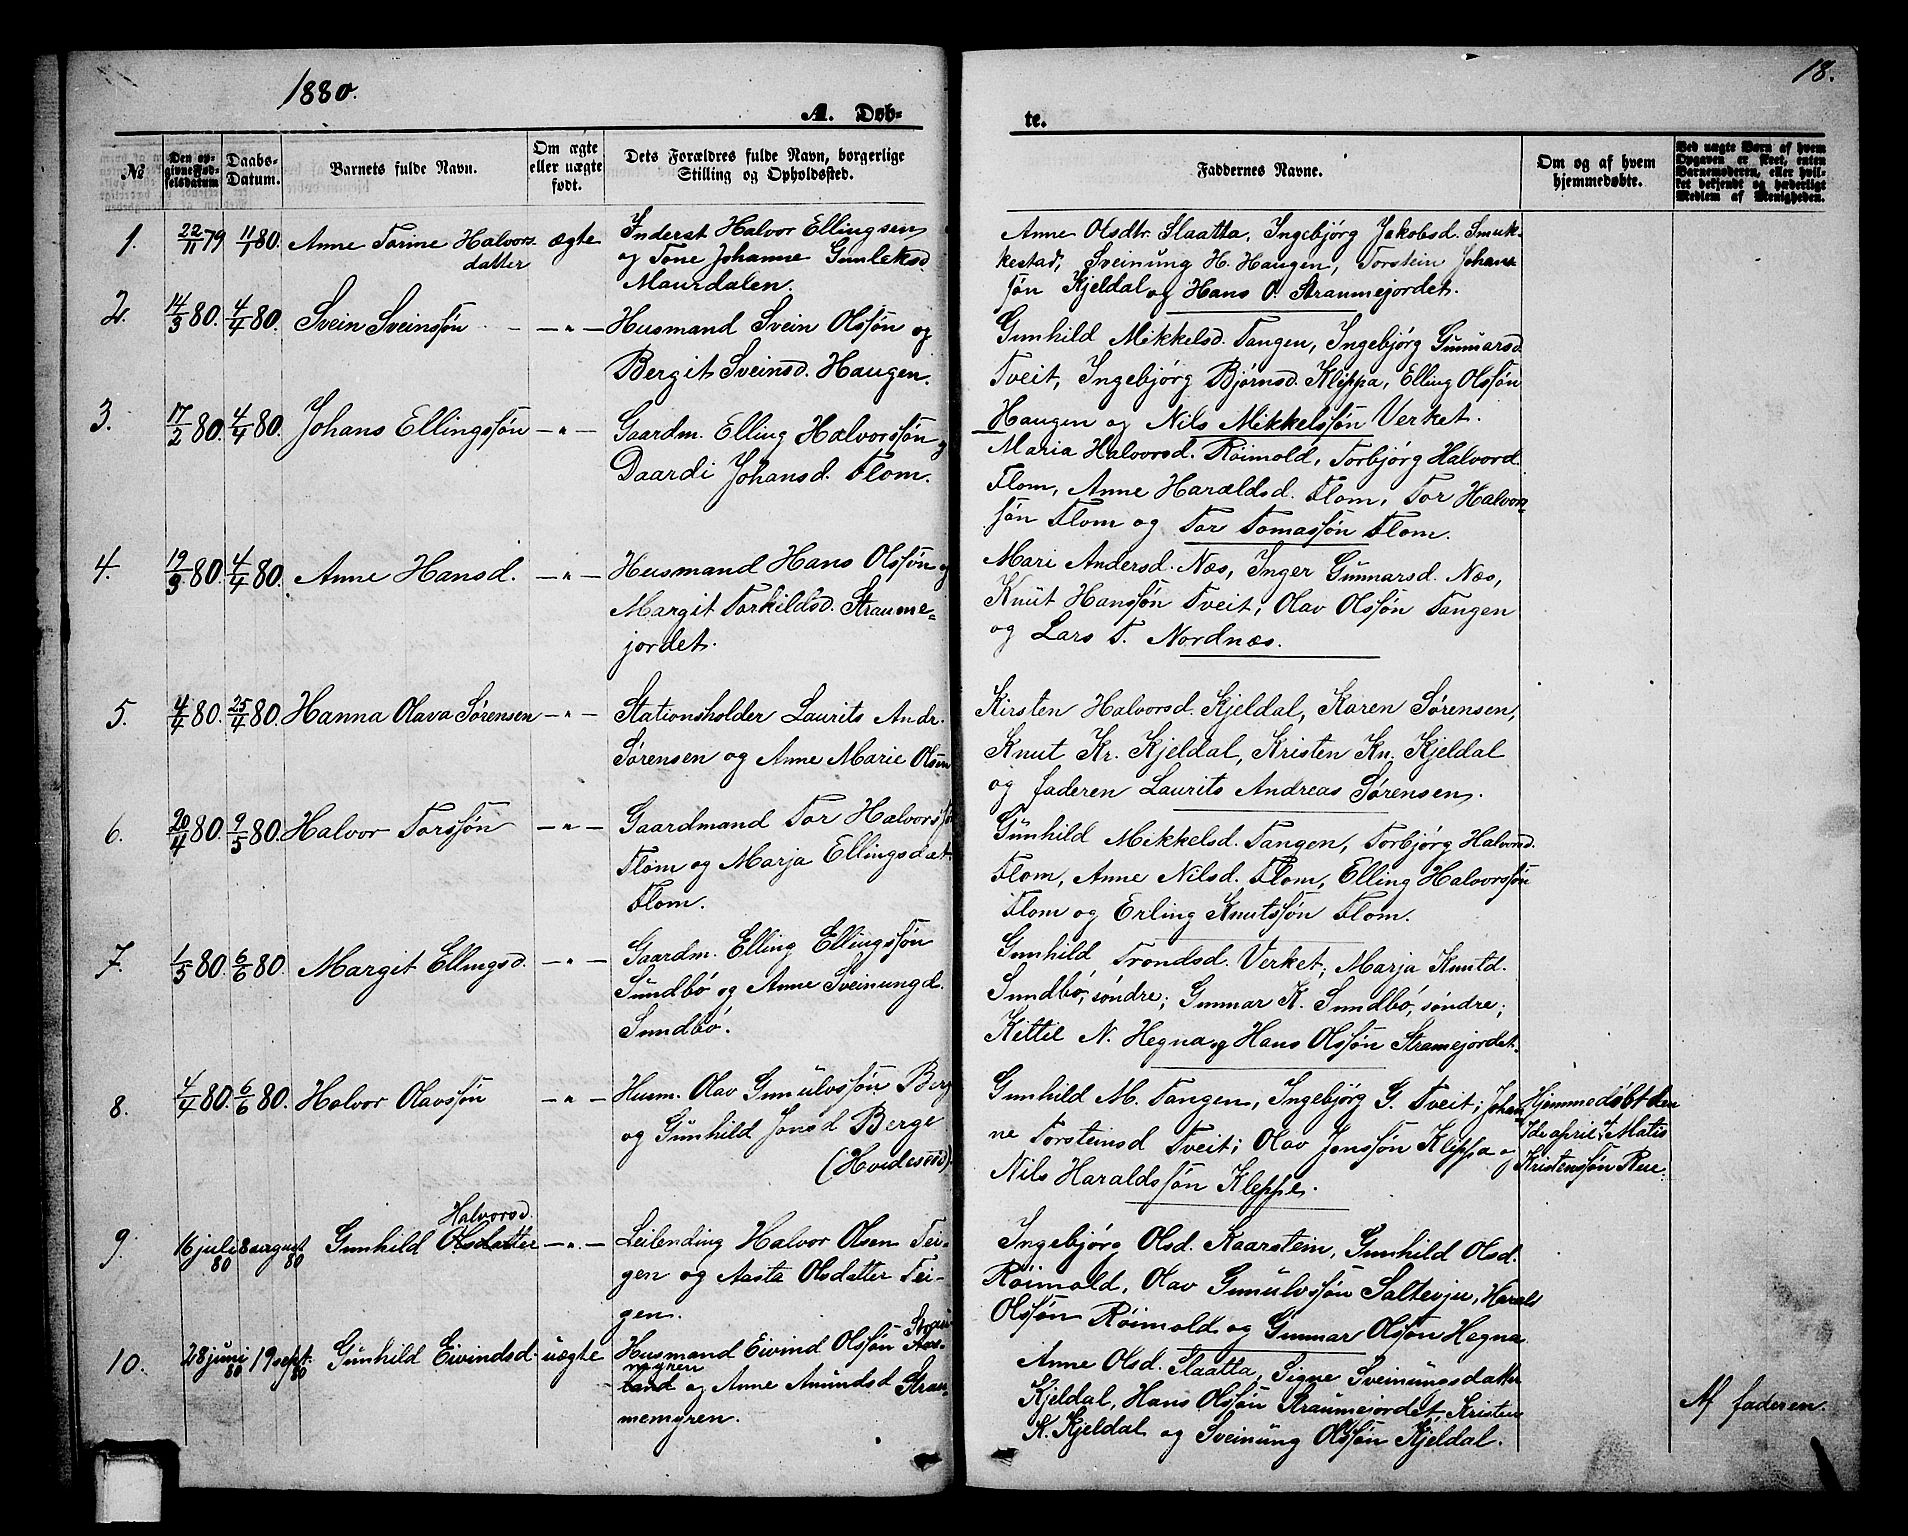 1880.
18.
A. Døb-
te.
No
Den op-
givne Fød-
selsdatum
Daabs-
Datum.
Barnets fulde Navn.
Om ægte
eller uægte
født.
Dets Forældres fulde Navn, borgerlige
Stilling og Opholdssted.
Faddernes Navne.
Om og af hvem
hjemmedøbte.
Ved uægte Børn af hvem
Opgaven er skeet, enten
Barnemoderen, eller hvil-
ket bekjendt og hæderligt
Medlem af Menigheden.
1. 22/11 79 11/1 80. Anne Torine Halvors-
datter ægte
Inderst Halvor Ellingsen
og Tone Johanne Gunleksd.
Maurdalen.
Anne Olsdtr. Slaatta, Ingebjørg Jakobsd. Smuk-
kestad, Sveinung H. Haugen, Torstein Johans-
søn Kjeldal og Hans O. Straumejordet.
2. 14/3 80. 4/4 80. Svein Sveinssøn — " —
Husmand Svein Olssøn og
Bergit Sveinsd. Haugen.
Gunhild Mikkelsd. Tangen, Ingebjørg Gunnarsd.
Tveit, Ingebjørg Bjørnsd. Kleppa, Elling Olssøn
Haugen og Nils Mikkelssøn Verket.
3. 17/2 80. 4/4 80. Johans Ellingssøn — " —
Gaardm. Elling Halvorssøn og
Daardi Johansd. Flom.
Maria Halvorsd. Röimold, Torbjørg Halvord.
Flom, Anne Haraldsd. Flom, Tor Halvors-
søn Flom og Tor Tomassøn Flom.
4. 19/3 80. 4/4 80. Anne Hansd. — " —
Husmand Hans Olssøn og
Margit Torkildsd. Straume-
jordet.
Mari Andersd. Næs, Inger Gunnarsd. Næs,
Knut Hanssøn Tveit, Olav Olssøn Tangen
og Lars T. Nordnæs.
5. 4/4 80. 25/4 80. Hanna Olava Sørensen — " —
Stationsholder Laurits Andr.
Sørensen og Anne Marie Olsen
Kirsten Halvorsd. Kjeldal, Karen Sørensen,
Knut Kr. Kjeldal, Kristen Kn. Kjeldal
og faderen Laurits Andreas Sørensen.
6. 20/4 80. 9/5 80. Halvor Torssøn — " —
Gaardmand Tor Halvorssø
Flom og Marja Ellingsdat.
Flom.
Gunhild Mikkelsd. Tangen, Torbjørg Halvorsd.
Flom, Anne Nilsd. Flom, Elling Halvorssøn
Flom og Erling Knutssøn Flom.
7. 1/5 80. 6/6 80. Margit Ellingsd. — " —
Gaardm. Elling Ellingssøn
Sundbö og Anne Sveinungd.
Sundbö.
Gunhild Trondsd. Verket, Marja Knutd.
Sundbö, söndre; Gunnar K. Sundbö, söndre;
Kittil N. Hegna og Hans Olssøn Stramejordet.
8. 4/4 80. 6/6 80. Halvor Olavssøn — " —
Husm. Olav Gunulvssøn Berg
og Gunhild Jonsd Berge
(Hvideseid).
Gunhild M. Tangen, Ingebjørg G. Tveit; Johan-
ne Torsteinsd Tveit; Olav Jonssøn Kleppa og
Nils Haraldssøn Kleppe.
Hjemmedøbt den
7de april af Matis
Kristenssøn Rue.
9. 16 juli 80 8 august 80 Gunhild Olsdatter
Halvorsd. — " —
Leilending Halvor Olsen Tei-
gen og Aasta Olsdatter Tei-
gen.
Ingebjørg Olsd. Kaarstein, Gunhild Olsd.
Röimold, Olav Gunulvssøn Saltevju, Harald
Olssøn Röimold og Gunnar Olssøn Hegna
10. 28 juni 80 19 sept. 80 Gunhild Eivindsd. uægte
Husmand Eivind Olssøn
myren
land og Anne Amundsd Strau-
memyren.
Anne Olsd. Slaatta, Signe Sveinungsdatter
Kjeldal, Hans Olssøn Straumejordet, Kristen
K. Kjeldal og Sveinung Olssøn Kjeldal.
Af faderen.